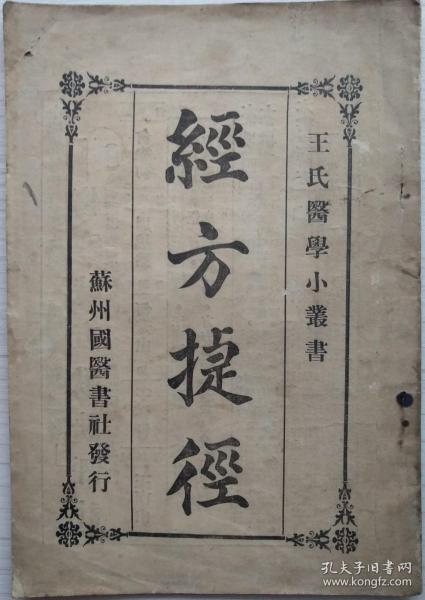 王氏醫學小叢書
經方捷徑
蘇州國醫書社發行
孔夫子旧书网
www.kongfz.com